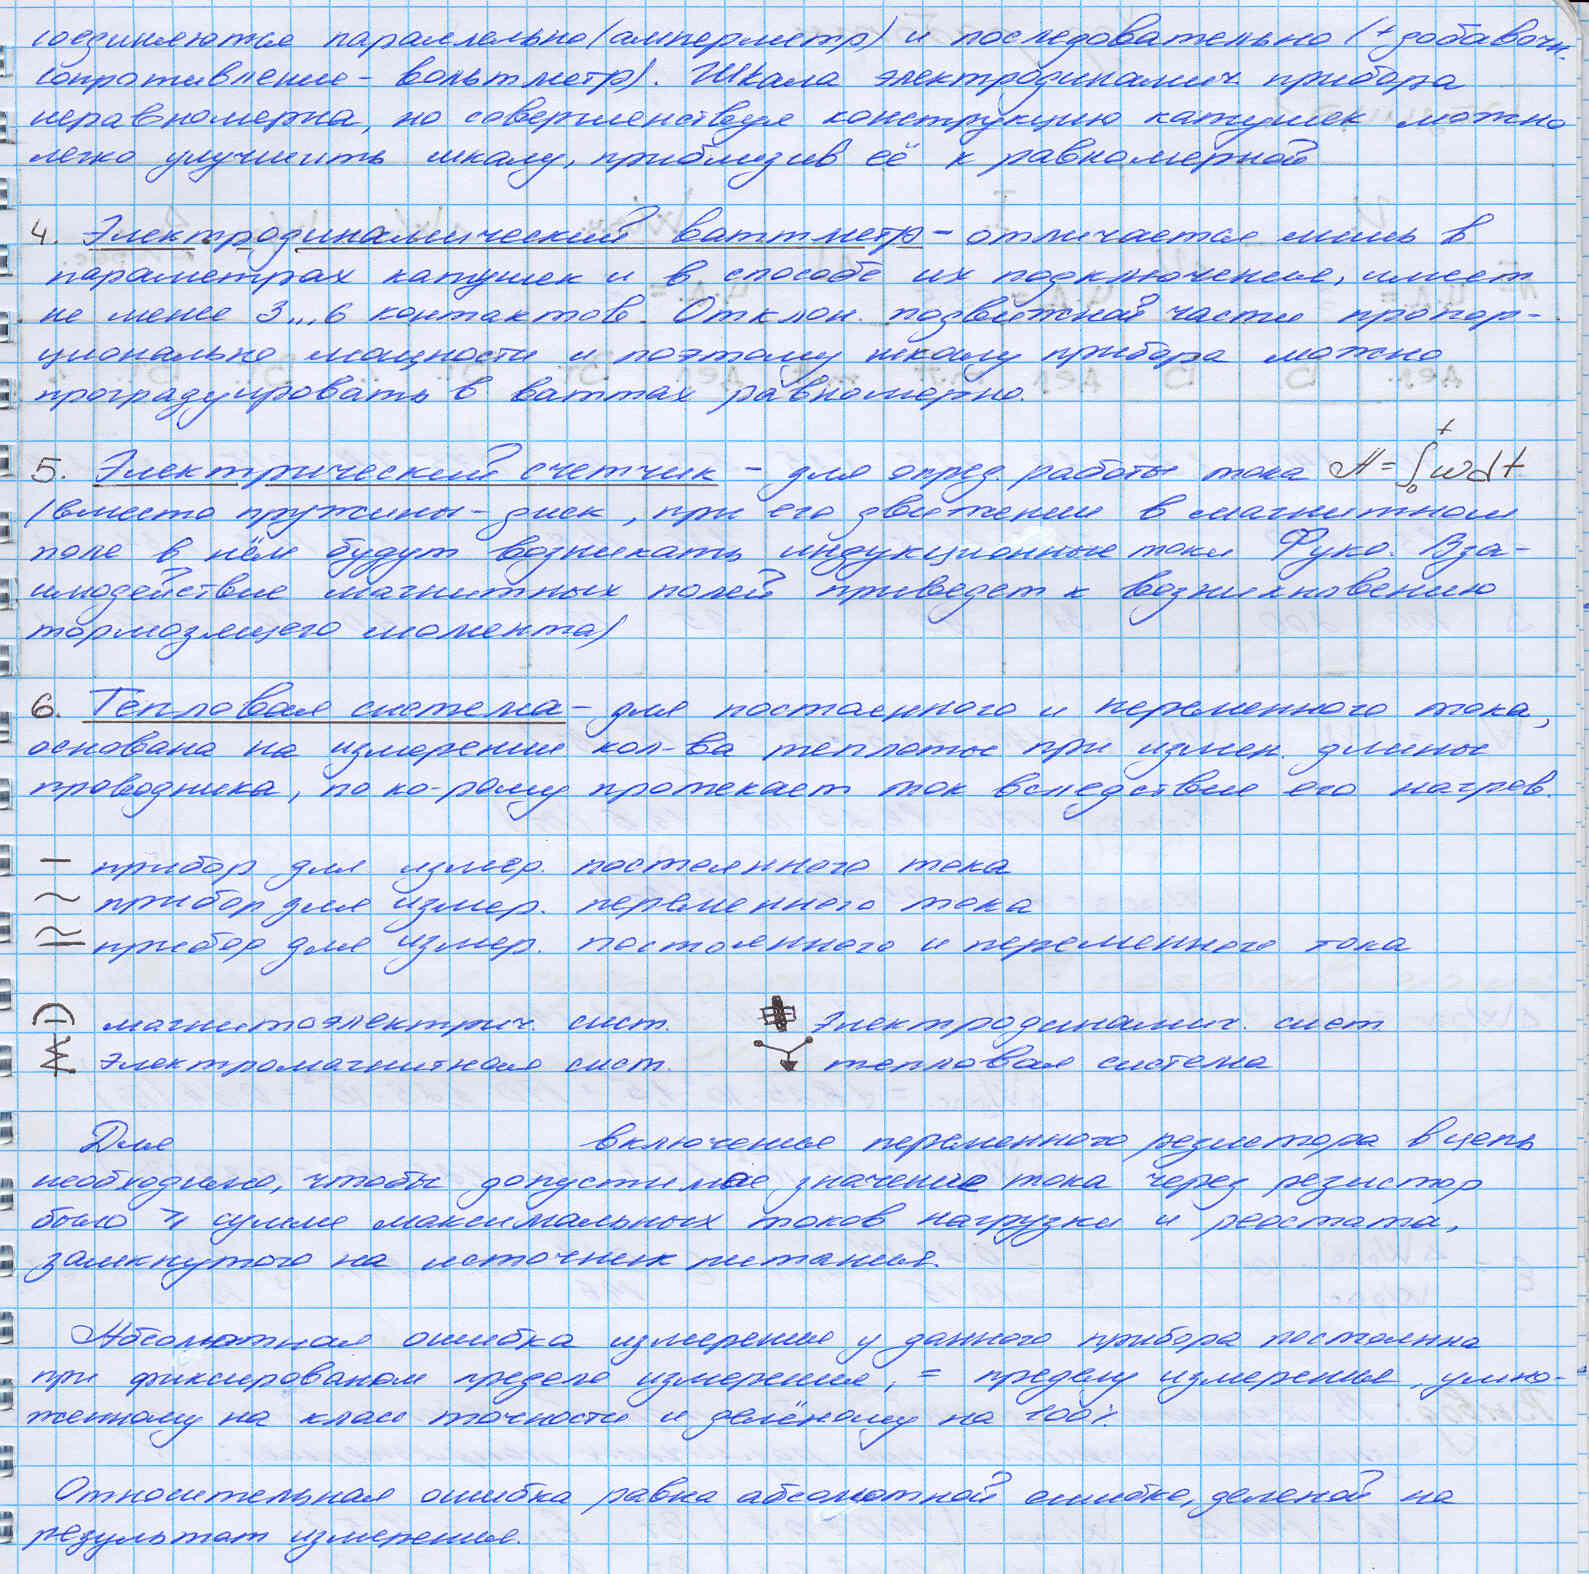 соединяются параллельно (амперметр) и последовательно (+добавочн.
сопротивление - вольтметр). Шкала электродинамич. прибора
неравномерна, но совершенствуя конструкцию катушек можно
легко улучшить шкалу, приблизив её к равномерной
4. Электродинамический ваттметр - отличается лишь в
параметрах катушек и в способе их подключения, имеет
не менее 3...6 контактов. Отклон. подвижной части пропор-
ционально мощности и поэтому шкалу прибора можно
проградуировать в ваттах равномерно.
5. Электрический счетчик - для опред. работы тока A = ∫₀ᵗ w dt
(вместо пружины - диск, при его движении в магнитном
поле в нём будут возникать индукционные токи Фуко. Вза-
имодействие магнитных полей приведет к возникновению
тормозящего момента)
6. Тепловая система - для постоянного и переменного тока,
основана на измерении кол-ва теплоты при измен. длины
проводника, по ко-рому протекает ток вследствие его нагрев.
— прибор для измер. постоянного тока
~ прибор для измер. переменного тока
прибор для измер. постоянного и переменного тока
магнитоэлектрич. сист. электродинамич. сист
электромагнитная сист. тепловая система
Для включения переменного резистора в цепь
необходимо, чтобы допустимое значение тока через резистор
было ⩾ сумме максимальных токов нагрузки и реостата,
замкнутого на источник питания.
Абсолютная ошибка измерения у данного прибора постоянна
при фиксированом пределе измерения, = пределу измерения, умно-
женному на класс точности и делёному на 100%
Относительная ошибка равна абсолютной ошибке, деленой на
результат измерения.